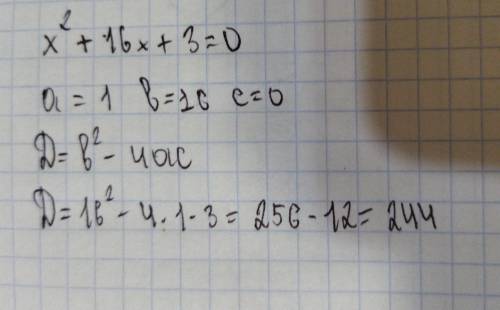 x² + 16x + 3 = 0
a = 1 b = 16 c = 0
D = b² - 4ac
D = 16² - 4 · 1 · 3 = 256 - 12 = 244